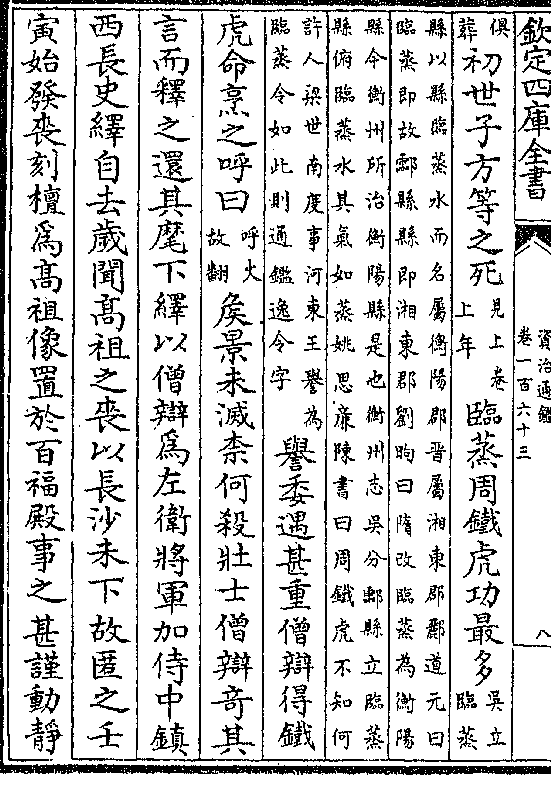 欽定四庫全書
資治通鑑
卷一百六十三
八
俱
葬
初世子方等之死
見上卷
上年
臨蒸周鐵虎功最多
吳立
臨蒸
縣以縣臨蒸水而名屬衡陽郡晉屬湘東郡酈道元曰
臨蒸即故酃縣縣即湘東郡劉昫曰隋改臨蒸為衡陽
縣今衡州所治衡陽縣是也衡州志吳分酃縣立臨蒸
縣俯臨蒸水其氣如蒸姚思廉陳書曰周鐵虎不知何
許人梁世南度事河東王譽為
臨蒸令如此則通鑑逸令字
譽委遇甚重僧辯得鐵
虎命烹之呼曰
呼火
故翻
矦景未滅柰何殺壯士僧辯奇其
言而釋之還其麾下繹以僧辯爲左衛將軍加侍中鎮
西長史繹自去歲聞髙祖之喪以長沙未下故匿之壬
寅始發喪刻檀爲髙祖像置於百福殿事之甚謹動靜